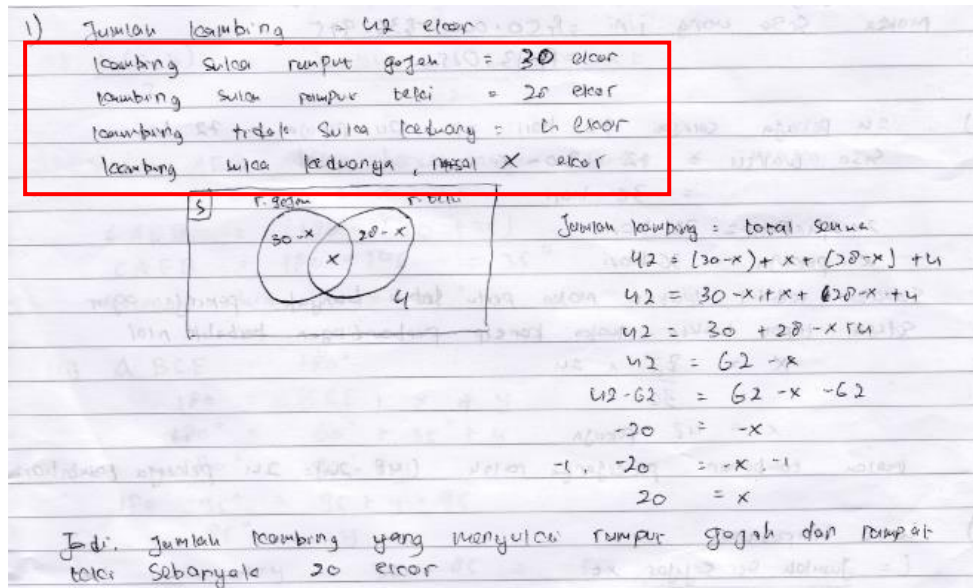 1) Jumlah kambing = 42 ekor
kambing suka rumput gajah = 30 ekor
kambing suka rumput teki = 28 ekor
kambing tidak suka keduany = 4 ekor
kambing suka keduanya, misal x ekor
S r. gajah r. teki
30-x 28-x
x
4
Jumlah kambing = total semua
42 = (30-x) + x + (28-x) + 4
42 = 30 -x+x + 28-x +4
42 = 30 +28 -x +4
42 = 62 -x
42-62 = 62 -x -62
-20 = -x
-1. -20 = -x . -1
20 = x
Jadi. Jumlah kambing yang menyukai rumput gajah dan rumput
teki sebanyak 20 ekor